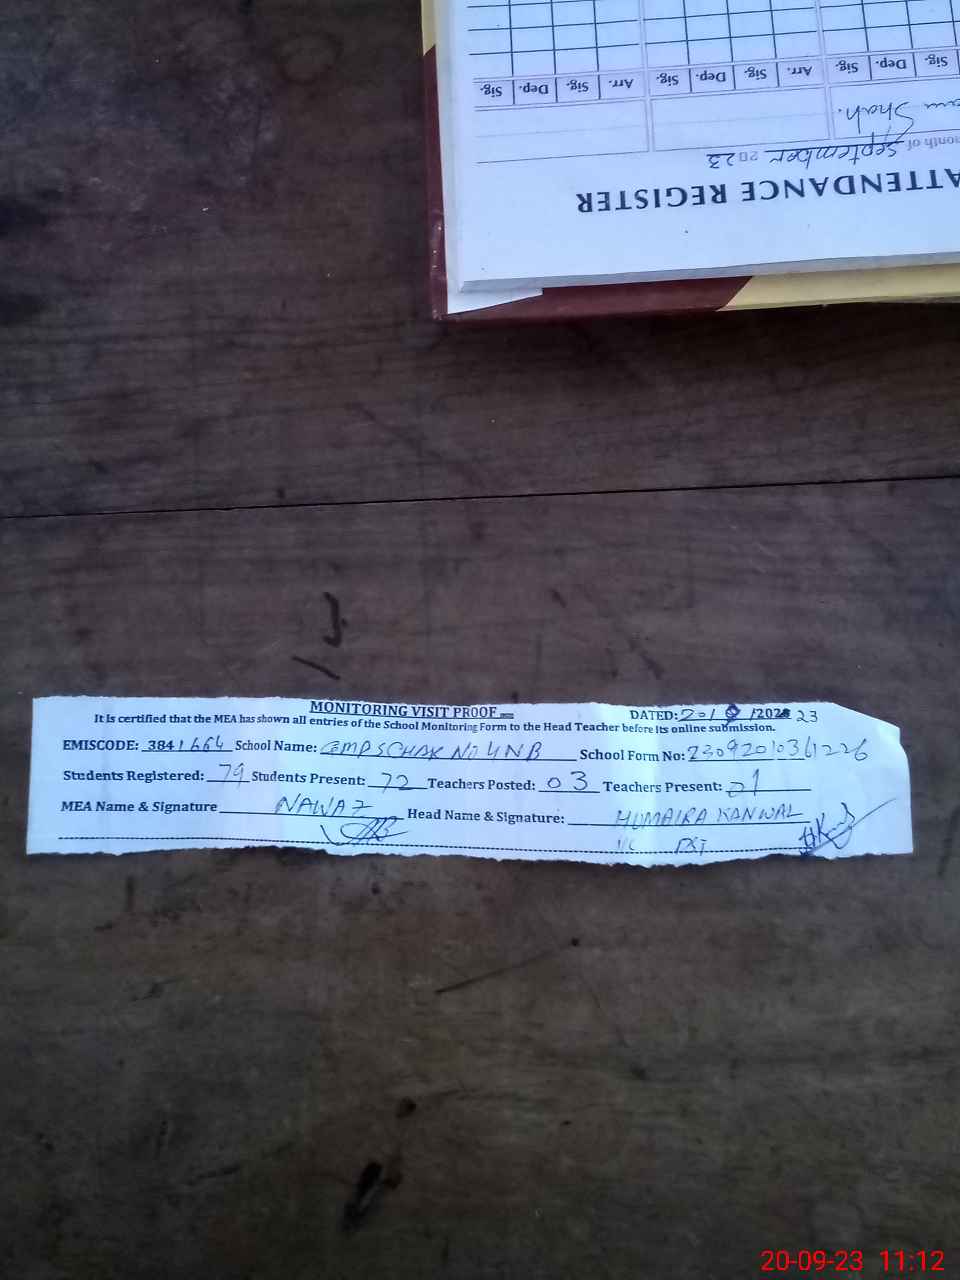 Sig. Dep. Sig. Arr. Sig. Dep. Sig. Arr. Sig. Dep. Sig.
Shah.
onth of September 2023
ATTENDANCE REGISTER
MONITORING VISIT PROOF
DATED: 20/9/2023
It is certified that the MEA has shown all entries of the School Monitoring Form to the Head Teacher before its online submission.
EMISCODE: 3841664 School Name: GMPS CHAK NO 4NB School Form No: 23092010361226
Students Registered: 79 Students Present: 72 Teachers Posted: 03 Teachers Present: 01
MEA Name & Signature NAWAZ Head Name & Signature: HUMAIRA KANWAL
I/C PST
20-09-23 11:12